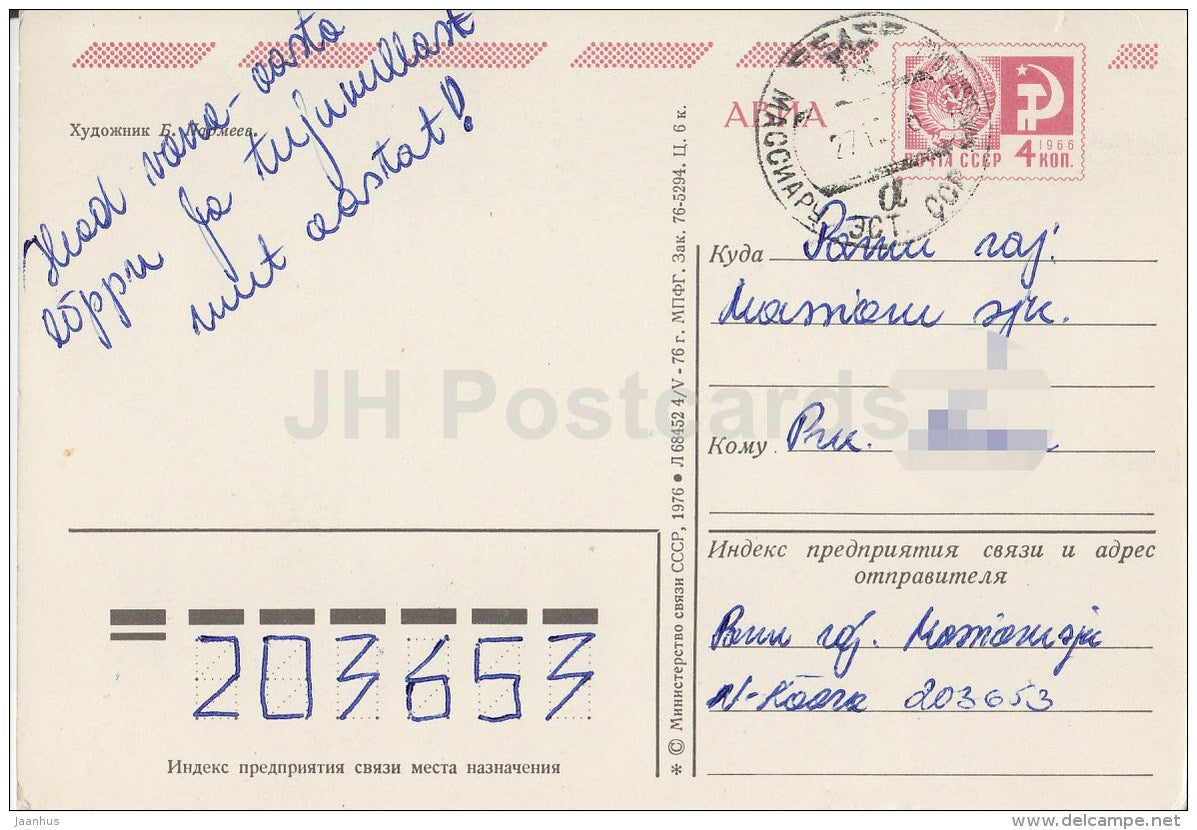 Head vana-aasta
lõppu ja tujuküllast
uut aastat!
Художник Б. Пармеев.
АВИА
ПОЧТА СССР 4 КОП.
1966
МАССИАРУ ЭСТ. ССР
а
Куда Pärnu raj.
Massiaru sjk.
Кому Prk.
Индекс предприятия связи и адрес
отправителя
Pärnu raj. Massiaru sjk
203653
203653
Индекс предприятия связи места назначения
* © Министерство связи СССР, 1976 ● Л 68452 4/V - 76 г. МПФГ. Зак. 76-5294. Ц. 6 к.
JH Postcards
Jaanhus
www.delcampe.net